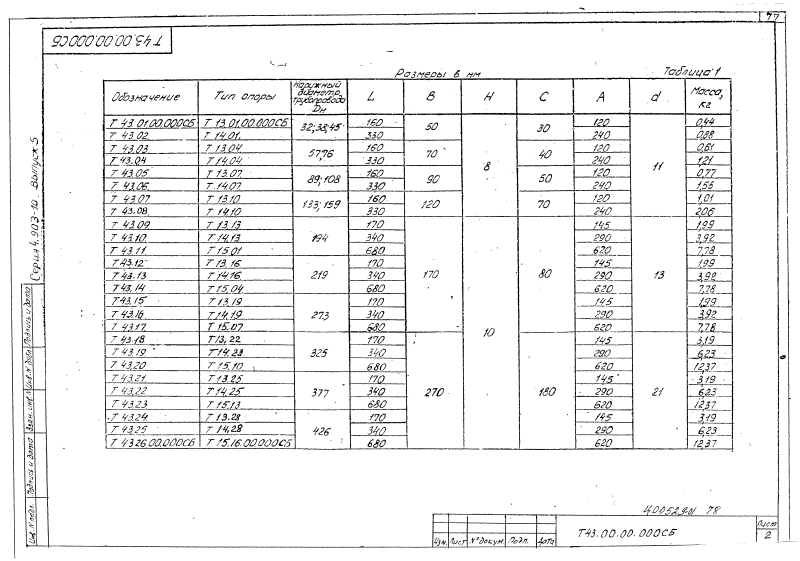 77
Т43.00.00.000СБ
Размеры в мм
Таблица 1
Обозначение Тип опоры Наружный диаметр трубопровода Dн L B H C A d Масса, кг
Т 43.01.00.000СБ Т 13.01.00.000СБ 32; 38; 45 160 50 8 30 120 11 0,44
Т 43.02 Т 14.01 330 240 0,88
Т 43.03 Т 13.04 57; 76 160 70 40 120 0,61
Т 43.04 Т 14.04 330 240 1,21
Т 43.05 Т 13.07 89; 108 160 90 50 120 0,77
Т 43.06 Т 14.07 330 240 1,55
Т 43.07 Т 13.10 133; 159 160 120 70 120 1,01
Т 43.08 Т 14.10 330 240 2,06
Т 43.09 Т 13.13 194 170 170 10 80 145 13 1,99
Т 43.10 Т 14.13 340 290 3,92
Т 43.11 Т 15.01 680 620 7,78
Т 43.12 Т 13.16 219 170 145 1,99
Т 43.13 Т 14.16 340 290 3,92
Т 43.14 Т 15.04 680 620 7,78
Т 43.15 Т 13.19 273 170 145 1,99
Т 43.16 Т 14.19 340 290 3,92
Т 43.17 Т 15.07 680 620 7,78
Т 43.18 Т 13.22 325 170 270 180 145 21 3,19
Т 43.19 Т 14.23 340 290 6,23
Т 43.20 Т 15.10 680 620 12,37
Т 43.21 Т 13.25 377 170 145 3,19
Т 43.22 Т 14.25 340 290 6,23
Т 43.23 Т 15.13 680 620 12,37
Т 43.24 Т 13.28 426 170 145 3,19
Т 43.25 Т 14.28 340 290 6,23
Т 43.26.00.000СБ Т 15.16.00.000СБ 680 620 12,37
Серия 4.903-10. Выпуск 5
Инв. № подл. Подпись и дата Взам. инв. № Инв. № дубл. Подпись и дата
78
Изм. Лист № докум. Подп. Дата
Т43.00.00.000СБ
Лист
2